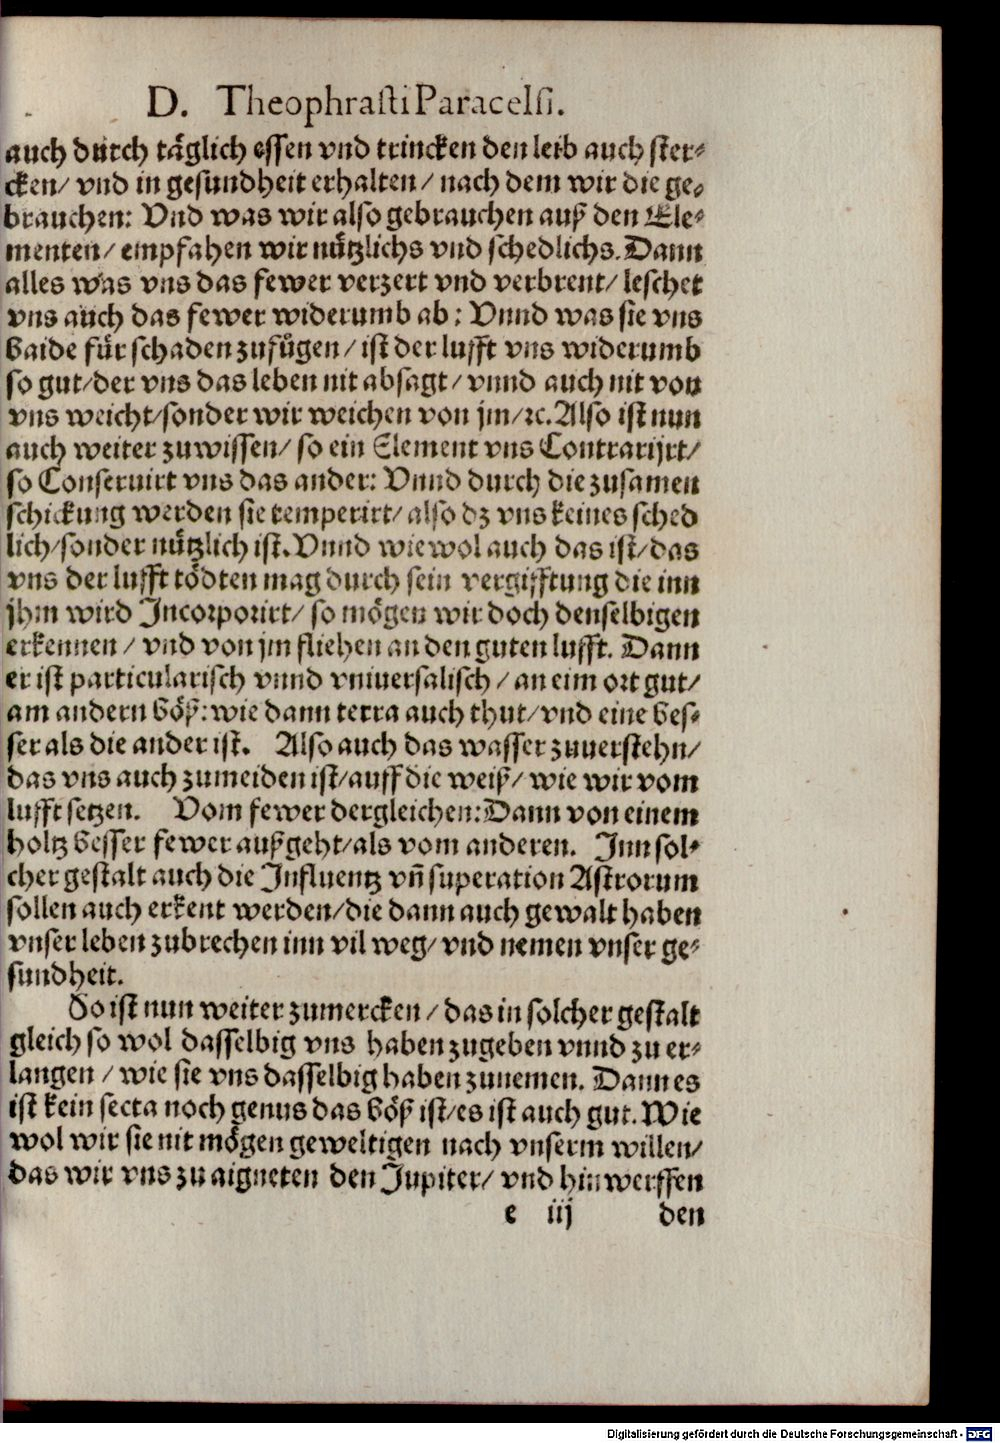 D. Theophrasti Paracelsi.
auch durch täglich essen vnd trincken den leib auch ster-
cken/ vnd in gesundheit erhalten/ nach dem wir die ge-
brauchen: Vnd was wir also gebrauchen auß den Ele-
menten/ empfahen wir nützlichs vnd schedlichs. Dann
alles was vns das fewer verzert vnd verbrent/ leschet
vns auch das fewer widerumb ab: Vnnd was sie vns
baide für schaden zufügen/ ist der lufft vns widerumb
so gut/ der vns das leben nit absagt/ vnnd auch nit von
vns weicht/ sonder wir weichen von jm/ ꝛc. Also ist nun
auch weiter zuwissen/ so ein Element vns Contrarijrt/
so Conseruirt vns das ander: Vnnd durch die zusamen
schickung werden sie temperirt/ also dz vns keines sched
lich/ sonder nützlich ist. Vnnd wiewol auch das ist/ das
vns der lufft tödten mag durch sein vergifftung die inn
jhm wird Incorporirt/ so mögen wir doch denselbigen
erkennen/ vnd von jm fliehen an den guten lufft. Dann
er ist particularisch vnnd vniuersalisch/ an eim ort gut/
am andern böß: wie dann terra auch thut/ vnd eine bes-
ser als die ander ist. Also auch das wasser zuuerstehn/
das vns auch zumeiden ist/ auff die weiß/ wie wir vom
lufft setzen. Vom fewer dergleichen: Dann von einem
holtz besser fewer außgeht/ als vom anderen. Inn sol-
cher gestalt auch die Influentz vñ superation Astrorum
sollen auch erkent werden/ die dann auch gewalt haben
vnser leben zubrechen inn vil weg/ vnd nemen vnser ge-
sundheit.
So ist nun weiter zumercken/ das in solcher gestalt
gleich so wol dasselbig vns haben zugeben vnnd zu er-
langen/ wie sie vns dasselbig haben zunemen. Dann es
ist kein secta noch genus das böß ist/ es ist auch gut. Wie
wol wir sie nit mögen geweltigen nach vnserm willen/
das wir vns zu aigneten den Jupiter/ vnd hinwerffen
e iij den
Digitalisierung gefördert durch die Deutsche Forschungsgemeinschaft - DFG